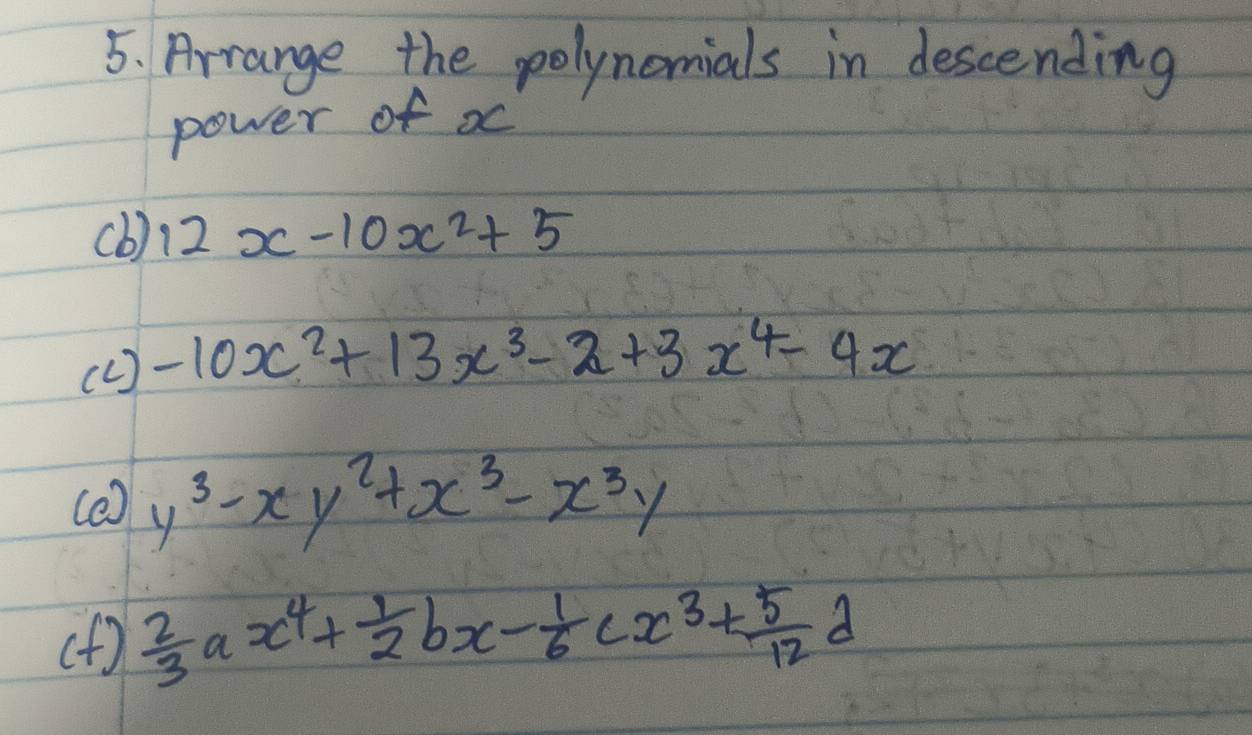 5. Arrange the polynomials in descending
power of x
(b) 12 x - 10x² + 5
(c) - 10x² + 13x³ - 2 + 3x⁴ - 4x
(e) y³ - xy² + x³ - x³y
(f) 2/3 a x⁴ + 1/2 bx - 1/6 cx³ + 5/12 d